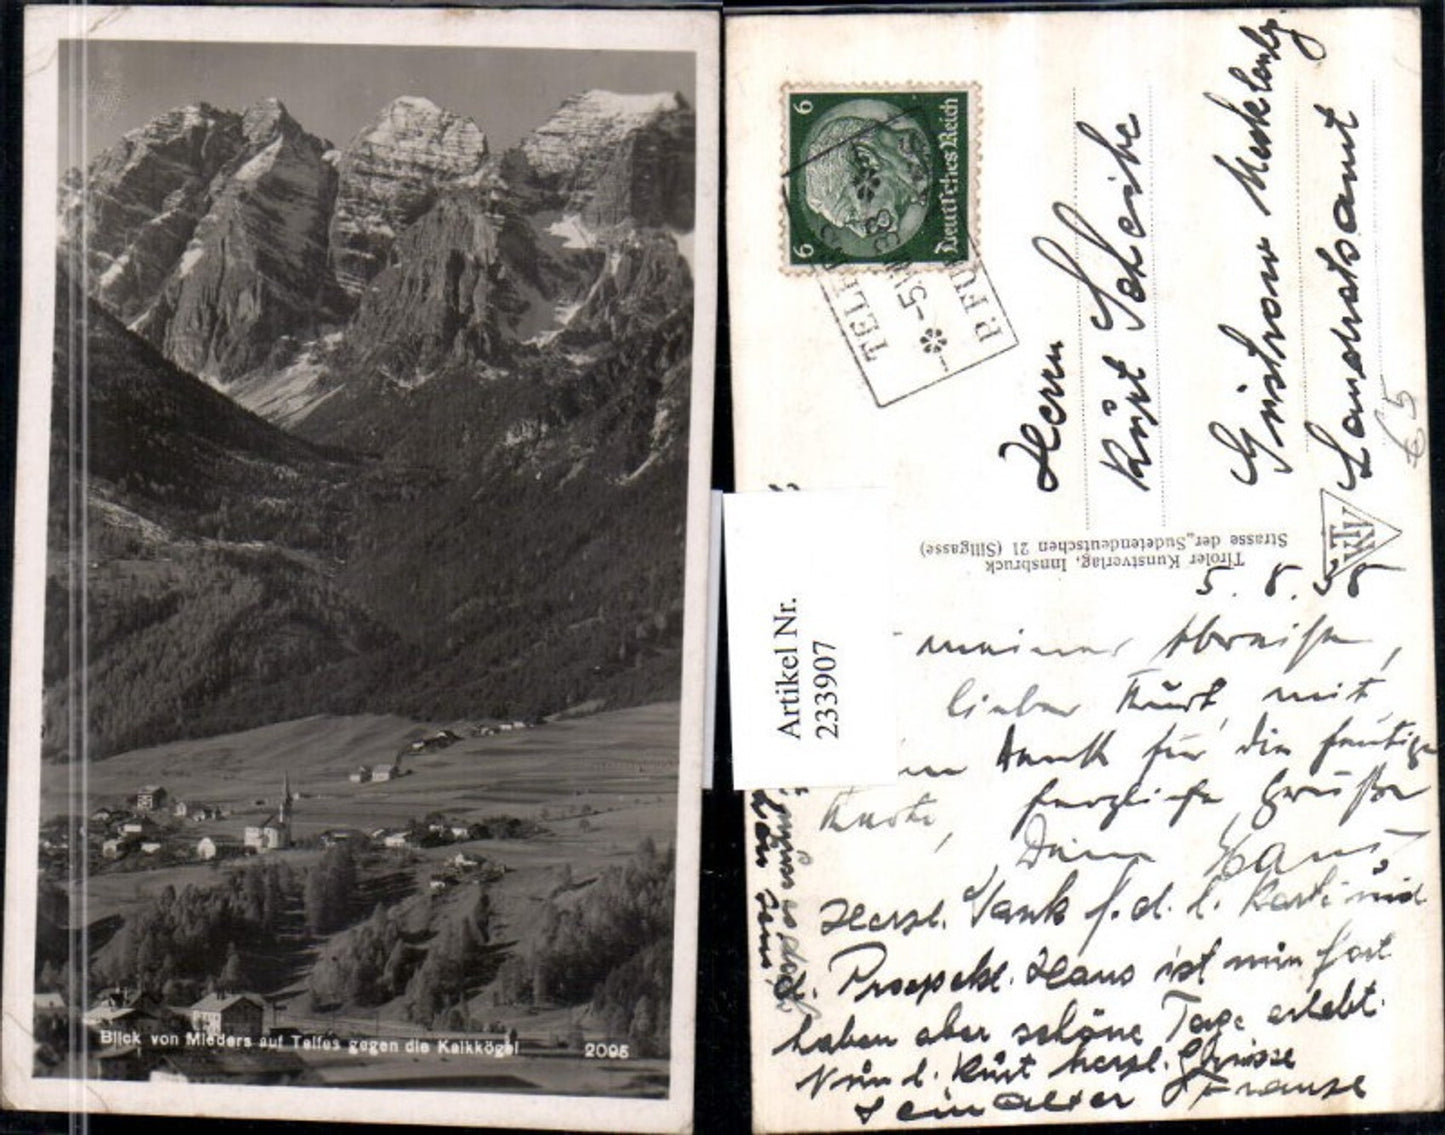 Blick von Mieders auf Telfes gegen die Kalkkögel 2095
6 6
Deutsches Reich
TELF
-5.
P. FU
Herrn
Kurt Scheibe
Güstrow
Landratsamt
€5
Tiroler Kunstverlag, Innsbruck
Strasse der „Sudetendeutschen 21 (Sillgasse)
TKV
5. 8. 38
meiner Abreise,
lieber Kurt, mit
Dank für die heutige
Karte, herzliche Grüße
Dein Hans
Herzl. Dank f. d. l. Karte und
d. Prospekt. Hans ist nun fort
haben aber schöne Tage erlebt.
Nun l. Kurt herzl. Grüsse
Dein alter Franzl
Artikel Nr.
233907